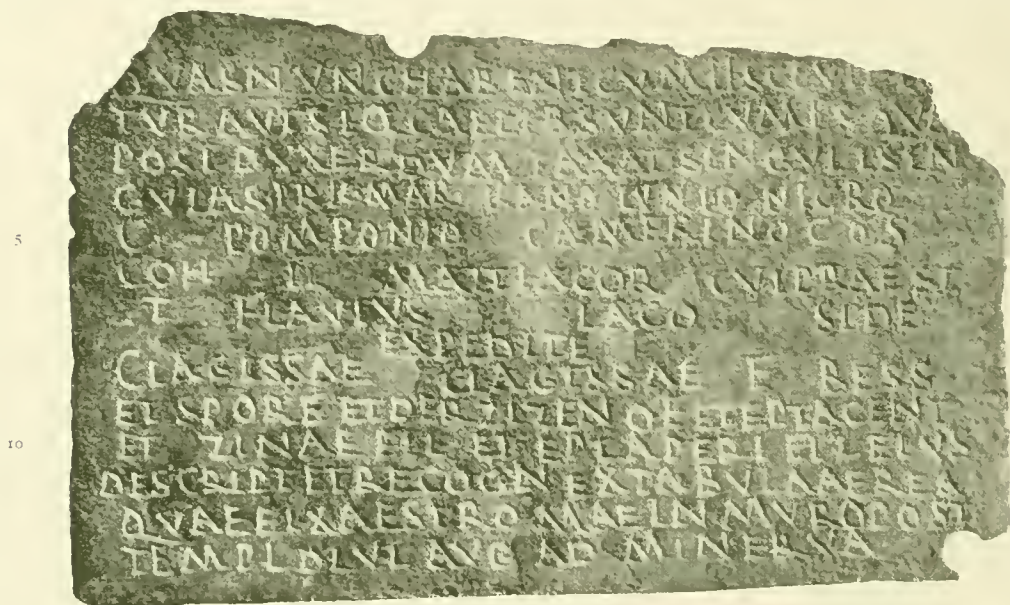 QVAS NVNC HABENT CVM IIS CIVIT
TVR AVT SI Q CAELIBES SVNT CVM IIS QVA
POST DVXER DVMTAXAT SINGVLI SIN
GVLAS PR K MAR KANO IVNIO NIGRO
5 C POMPONIO CAMERINO COS
COH II MATTIACOR CVI PRAEST
T FLAVIVS LACO SEDE
EXPEDITE
CLAGISSAE CLAGISSAE F BESS
ET SPORE ET DERZIZENQ F ET EPTACENT
10 ET ZINAE FIL EI ET EPTAPERI FIL EIVS
DESCRIPT ET RECOGN EX TABVLA AEREA
QVAE FIXA EST ROMAE IN MVRO POST
TEMPL DIVI AVG AD MINERVA